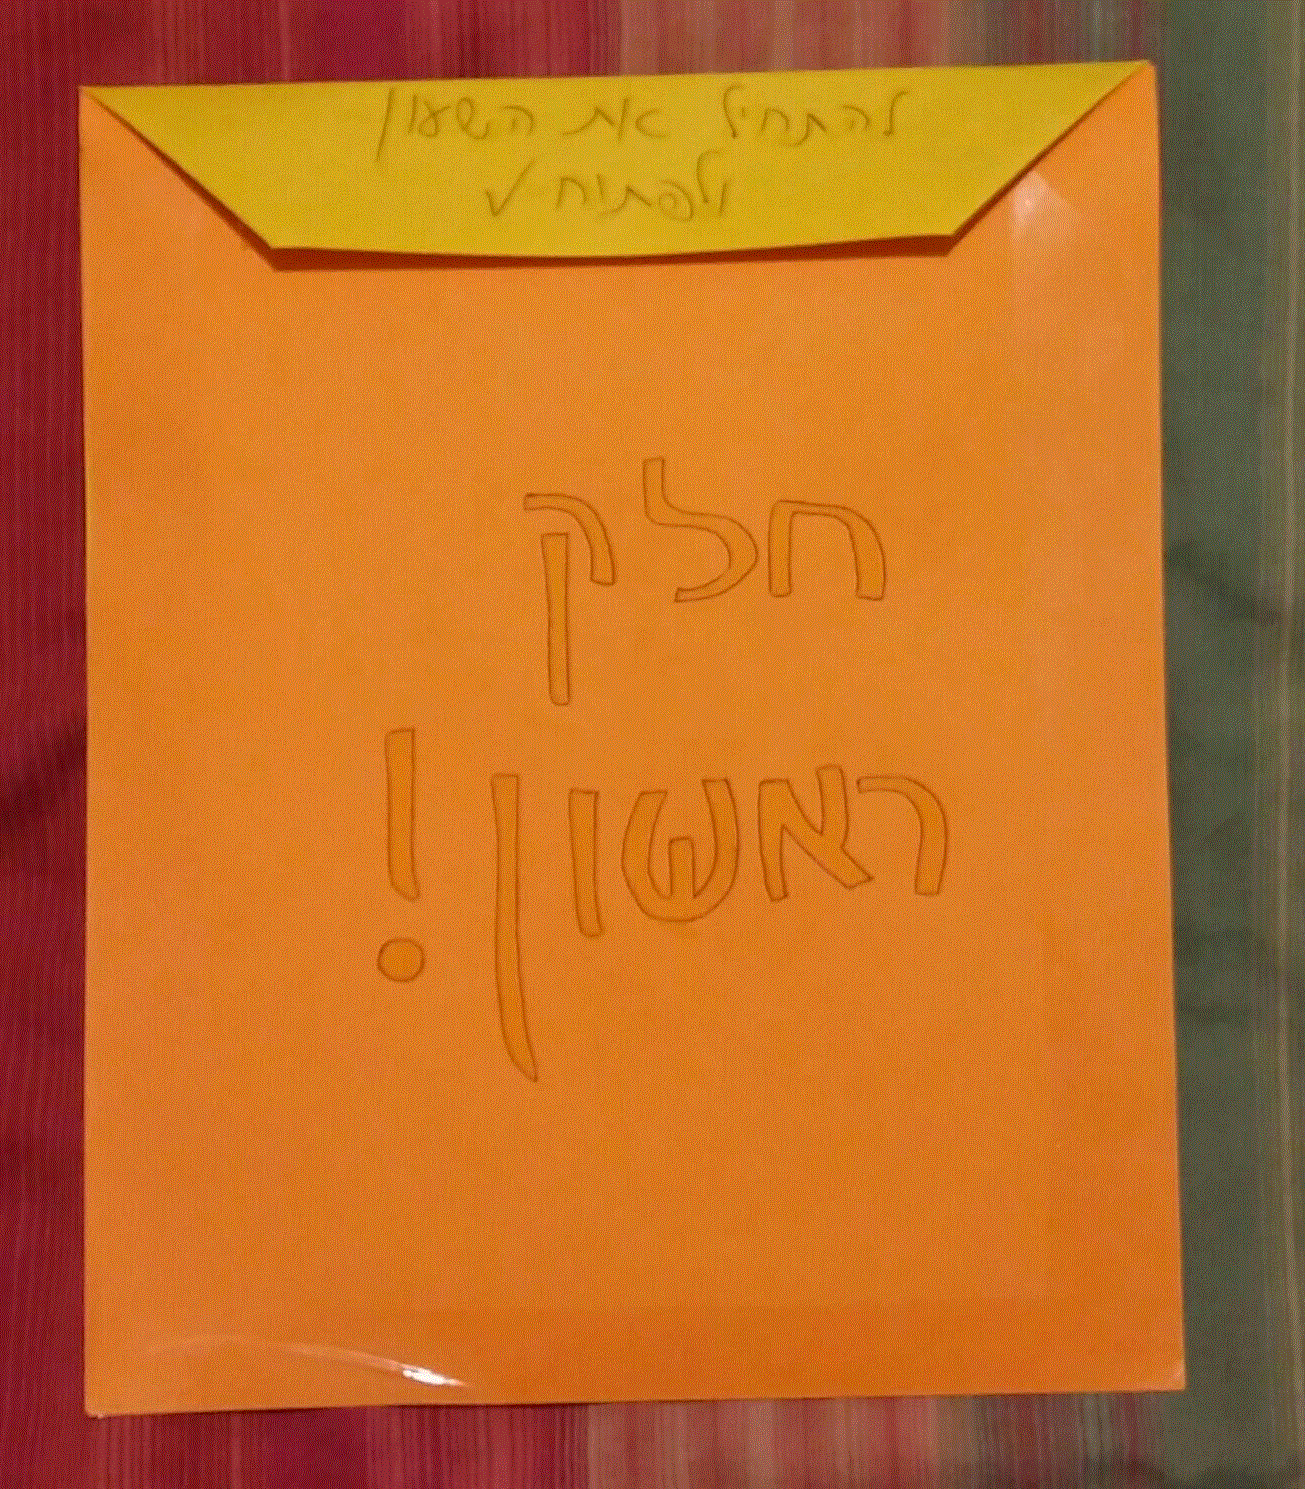 להתחיל את השעון
ולפתוח √
חלק
ראשון!